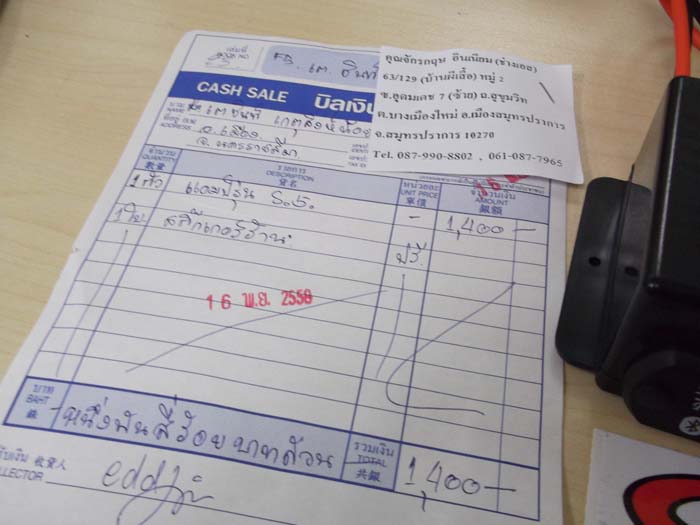 เล่มที่
BOOK NO.
คุณจักรกฤษ อินเนียม (ช่างเอส)
63/129 (บ้านผีเสื้อ) หมู่ 2
ซ.อุดมเดช 7 (ซ้าย) ถ.สุขุมวิท
ต.บางเมืองใหม่ อ.เมืองสมุทรปราการ
จ.สมุทรปราการ 10270
Tel. 087-990-8802 , 061-087-7965
CASH SALE บิลเงิน
นาม
NAME
ที่อยู่
ADDRESS
อ.เมือง
จ.นครราชสีมา
จำนวน
QUANTITY
數量
รายการ
DESCRIPTION
貨名
หน่วยละ
UNIT PRICE
單價
จำนวนเงิน
AMOUNT
銀額
1 ตัว แอมป์รุ่น S.5. - 1,400-
1 ใบ สติ๊กเกอร์ร้าน ฟรี
16 พ.ย. 2558
บาท
BAHT
銖
หนึ่งพันสี่ร้อยบาทถ้วน
รวมเงิน
TOTAL
共銀
1,400-
รับเงิน 收貨人
LLECTOR